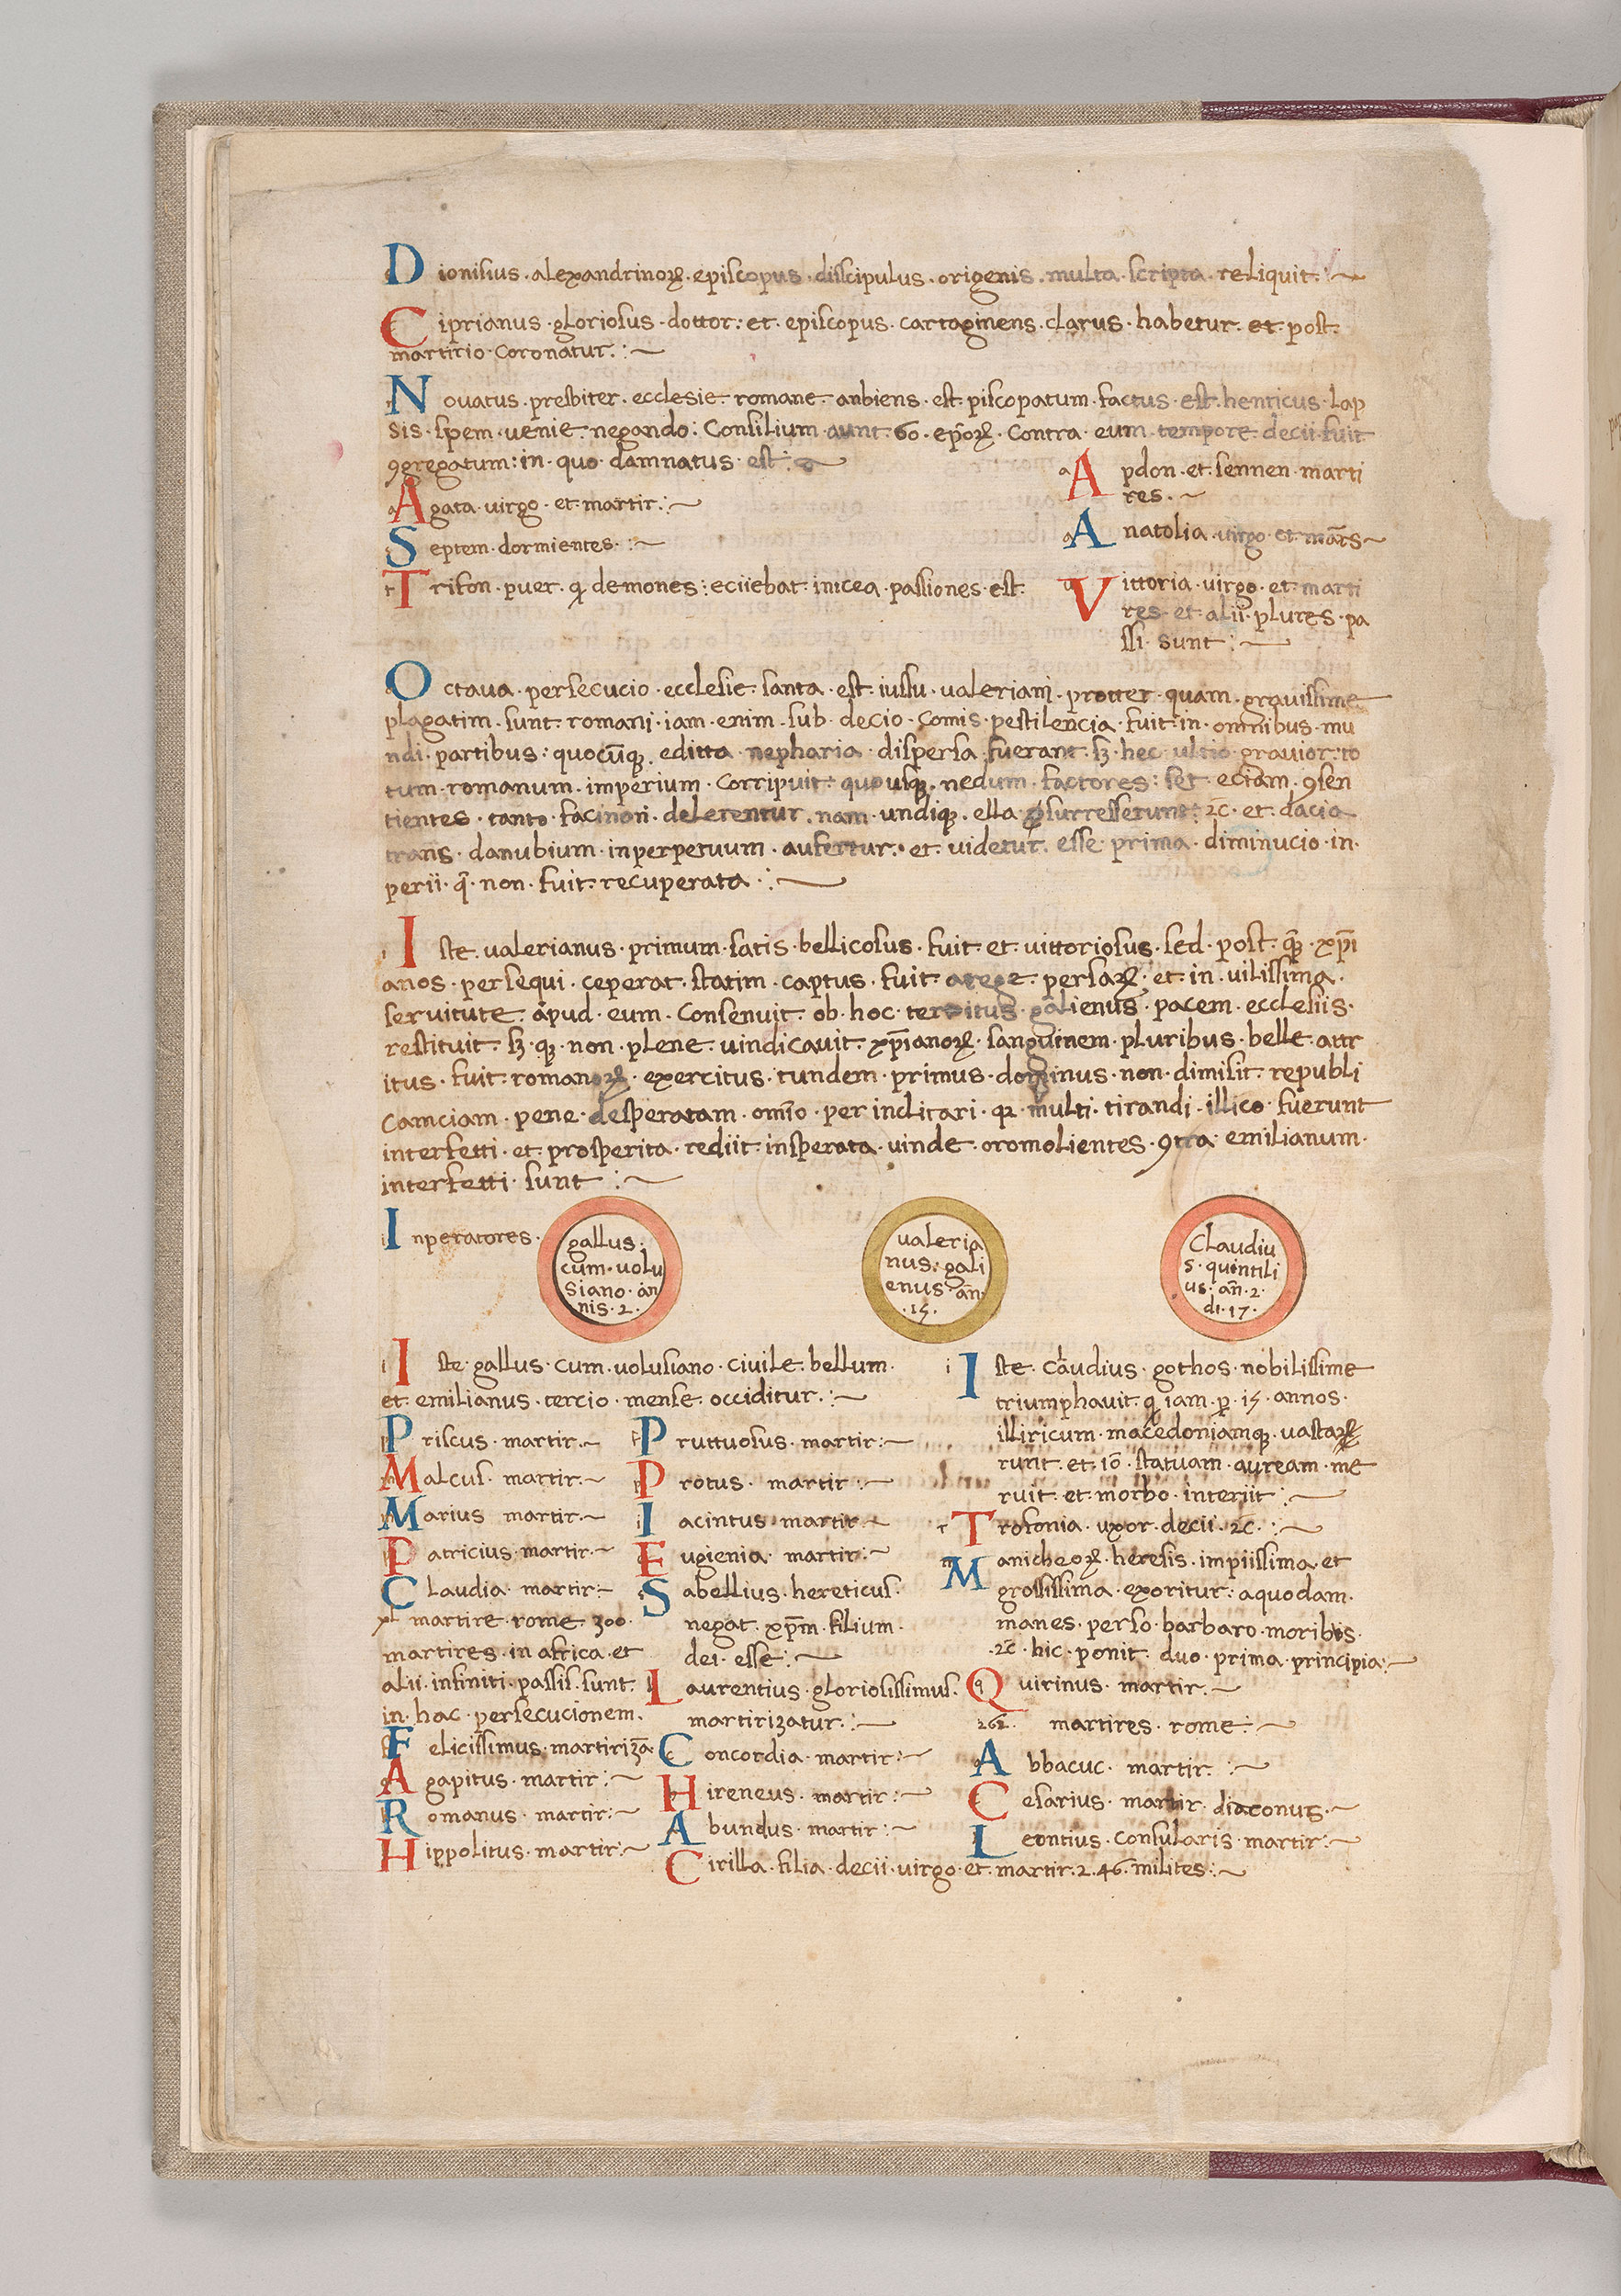 Dionisius · alexandrinoꝝ · episcopus · discipulus · origenis · multa · scripta · reliquit :~
Ciprianus · gloriosus · dottor : et · episcopus · cartaginens · clarus · habetur · et · post ·
martirio · coronatur :~
Novatus · presbiter · ecclesie · romane · anbiens · est · piscopatum · factus · est · henticus · lap
sis · spem · venie · negando : Consilium aunt · 60 · epōꝝ · contra · eum tempore decii fuit
ꝯgregatum : in · quo · damnatus · est :~
Agata · virgo · et · martir :~
Septem · dormientes :~
Trifon · puer · qi demones : eciiebat · inicea · passiones · est
Apdon · et · sennen · marti
res · ~
Anatolia · virgo · et · mārs ~
Vittoria · virgo · et · marti
res · et · alii · plures · pa
ssi · sunt :~
Octava · persecucio · ecclesie · santa · est · iussu · valeriani · protter · quam · gravissime
plagatim · sunt · romani · iam · enim · sub · decio · comis · pestilencia · fuit · in · omnibus · mu
ndi · partibus : quocūqꝫ editta · nepharia · dispersa fuerant · sꝫ · hec ultio gravior : to
tum · romanum · imperium · corripuit : quousqꝫ · nedum · factores : set · eciam · ꝯsen
tientes · tanto · facinori · delerentur · nam · undiqꝫ · ella surresserunt : ⁊c · et · dacia
trans · danubium · inperpetuum · aufertur : et · videtur · esse prima · diminucio · in ·
perii · q̄ · non · fuit · recuperata :~
Iste valerianus · primum · satis · bellicosus · fuit · et · vittoriosus · sed · post · qꝫ · xp̄i
anos · persequi · ceperat · statim · captus · fuit · arege · persaꝝ · et · in · vilissima ·
servitute · apud · eum · consenuit · ob · hoc · territus · galienus · pacem · ecclesiis ·
restituit · sꝫ · qꝫ · non · plene · vindicavit · xp̄ianoꝝ · sanguinem · pluribus · belle · attr
itus · fuit · romanoꝝ · exercitus · tundem · primus · dominus · non · dimisit · republi
camciam · pene · desperatam · omīo · per inclitari · qꝛ multi · tirandi · illico · fuerunt
interfetti · et · prosperita · rediit · insperata · vinde · oromolientes · ꝯtra · emilianum ·
interfetti · sunt :~
Inperatores ·
gallus ·
cum · volu
siano · an
nis · 2 ·
valeria
nus · gali
enus · an̄ ·
· 15 ·
Claudiu
s · quintili
us · an̄ · 2 ·
di · 17 ·
Iste · gallus · cum · volusiano · civile · bellum ·
et · emilianus · tercio · mense · occiditur :~
Priscus · martir ~
Malcus · martir ~
Marius martir ~
Patricius · martir ~
Claudia · martir :~
xl martire · rome · 300 ·
martires · in africa · et
alii · infiniti · passis · sunt ·
in · hac · persecucionem ·
Felicissimus · martirizā ·
Agapitus · martir :~
Romanus · martir :~
Hippolitus · martir :~
Pruttuosus · martir :~
Protus · martir :~
Iacintus · martir ~
Eugienia · martir :~
Sabellius · hereticus ·
negat · xp̄m · filium ·
dei · esse :~
Laurentius · gloriosissimus ·
martirizatur :~
Concordia · martir :~
Hireneus · martir :~
Abundus · martir :~
Cirilla · filia · decii · virgo · et · martir · 2 · 46 · milites :~
Iste · claudius · gothos · nobilissime
triumphavit · qi iam · p̱ · 15 · annos ·
illiricum · macedoniamqꝫ · vastaꝝ
runt · et · iō · statuam · auream · me
ruit · et · morbo · interiit :~
Trofonia · uxor · decii · ⁊c :~
Manicheoꝝ · heresis · impiissima et
grossissima · exoritur : aquodam ·
manes · perso · barbaro · moribus ·
· ⁊c · hic · ponit · duo · prima · principia :~
Quirinus · martir ~
262 · martires · rome :~
Abbacuc · martir :~
Cesarius · martir · diaconus ~
Leontius · consularis · martir :~